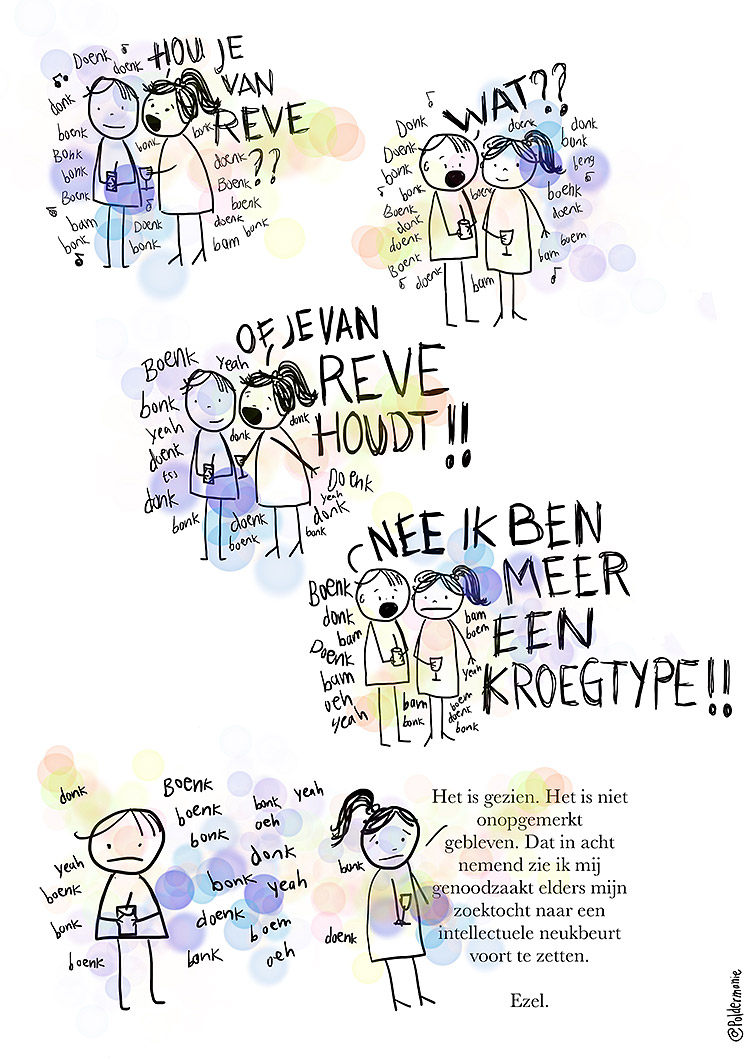 HOU JE
VAN
REVE
??
Doenk
doenk
donk
boenk
Bonk
bonk
Boenk
bam
bonk
bonk
bonk
doenk
Boenk
boenk
doenk
bonk
bam
Doenk
bonk
WAT??
Donk
Doenk
bonk
bonk
Boenk
donk
doenk
Boenk
doenk
boenk
bam
doenk
donk
bonk
beng
boenk
doenk
boem
bam
OF JE VAN
REVE
HOUDT!!
Boenk
yeah
bonk
yeah
doenk
donk
bonk
donk
donk
doenk
boenk
Doenk
yeah
donk
bonk
NEE IK BEN
MEER
EEN
KROEGTYPE!!
Boenk
donk
bam
Doenk
bam
oeh
yeah
bam
boem
yeah
bam
bonk
boem
doenk
bonk
donk
Boenk
boenk
bonk
bonk
yeah
oeh
donk
yeah
boenk
bonk
boenk
bonk
yeah
doenk
boem
bonk
oeh
bonk
doenk
Het is gezien. Het is niet
onopgemerkt
gebleven. Dat in acht
nemend zie ik mij
genoodzaakt elders mijn
zoektocht naar een
intellectuele neukbeurt
voort te zetten.
Ezel.
@Poldermonie